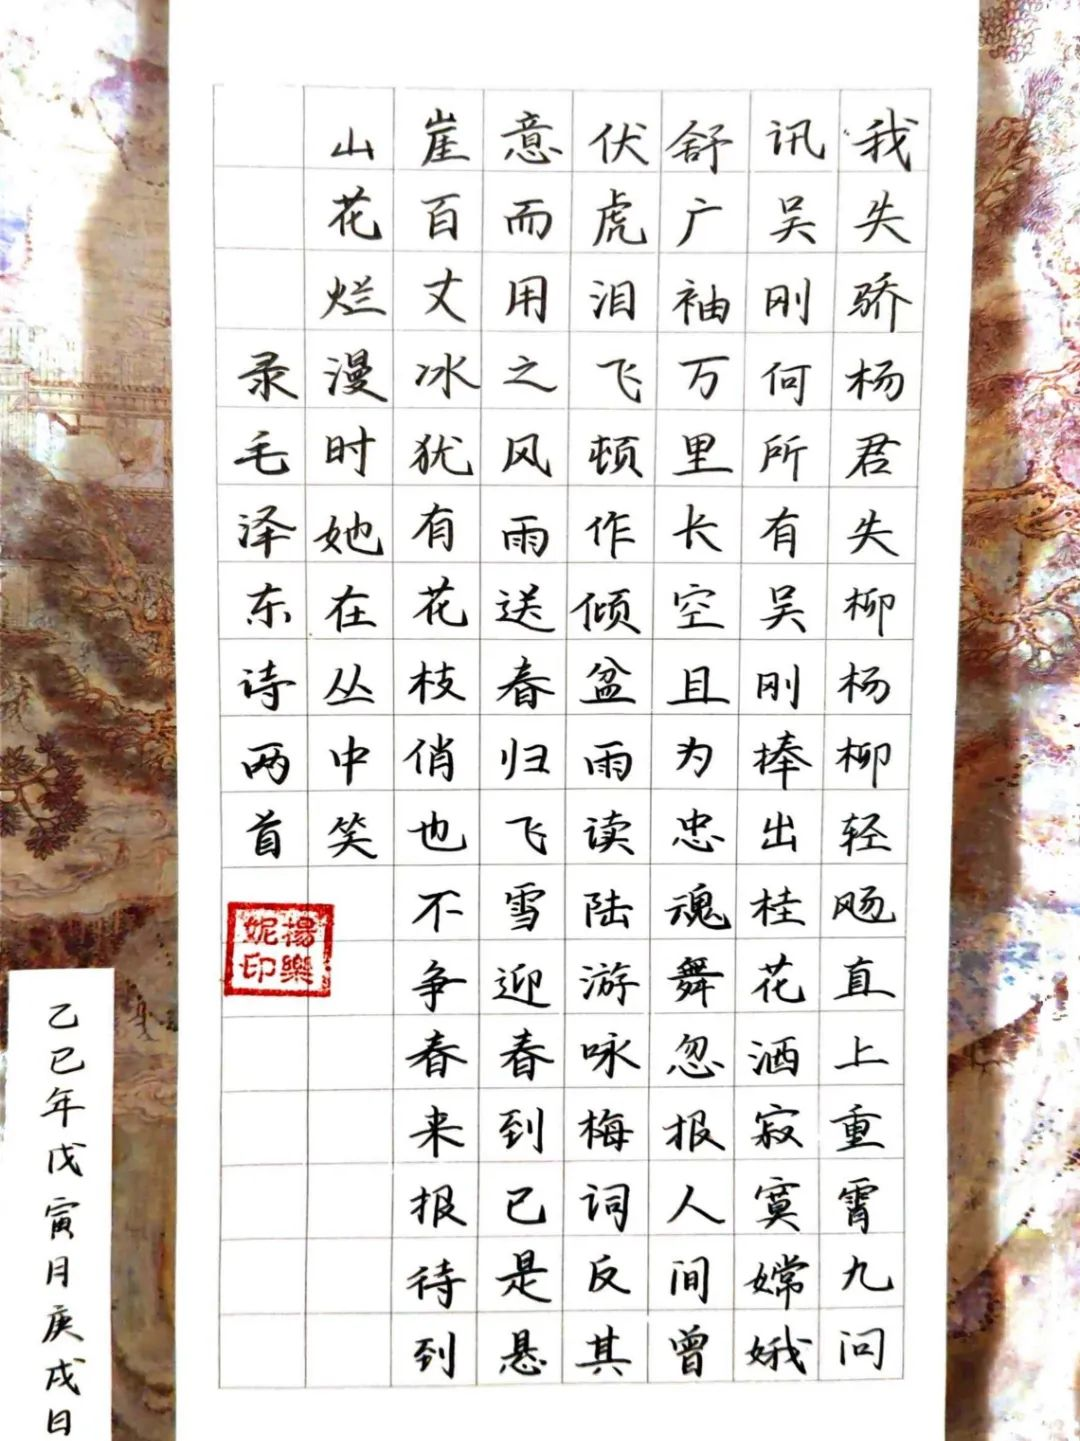 我失骄杨君失柳杨柳轻飏直上重霄九问
讯吴刚何所有吴刚捧出桂花酒寂寞嫦娥
舒广袖万里长空且为忠魂舞忽报人间曾
伏虎泪飞顿作倾盆雨读陆游咏梅词反其
意而用之风雨送春归飞雪迎春到已是悬
崖百丈冰犹有花枝俏也不争春来报待到
山花烂漫时她在丛中笑
录毛泽东诗两首
楊樂妮印
乙巳年戊寅月庚戌日